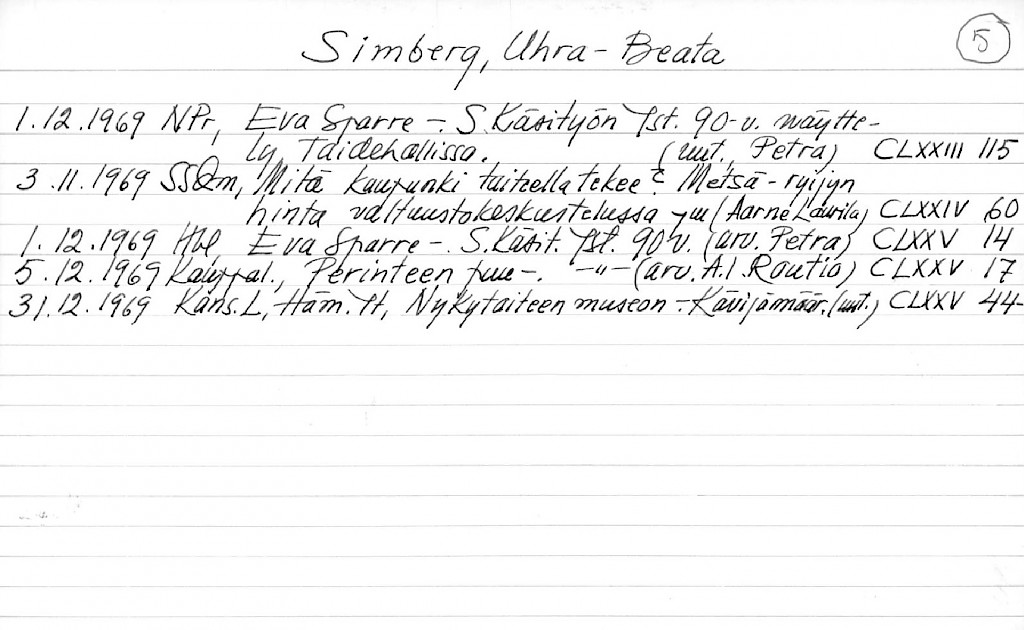 Simberg, Uhra-Beata 5
1.12.1969 NPr, Eva Sparre -. S. Käsityön Yst. 90-v. näytte-
ly Taidehallissa. (uut. Petra) CLXXIII 115
3.11.1969 SSdm, Mitä kaupunki taiteella tekee? Metsä-ryijyn
hinta valtuustokeskustelussa ym (Aarne Laurila) CLXXIV 60
1.12.1969 Hbl Eva Sparre -. S. Käsit. Yst. 90 v. (arv. Petra) CLXXV 14
5.12.1969 Kauppal., Perinteen puu -. -"- (arv. A.I. Routio) CLXXV 17
31.12.1969 Kans.L, Häm.Yt, Nykytaiteen museon - Kävijämäär. (uut.) CLXXV 44-